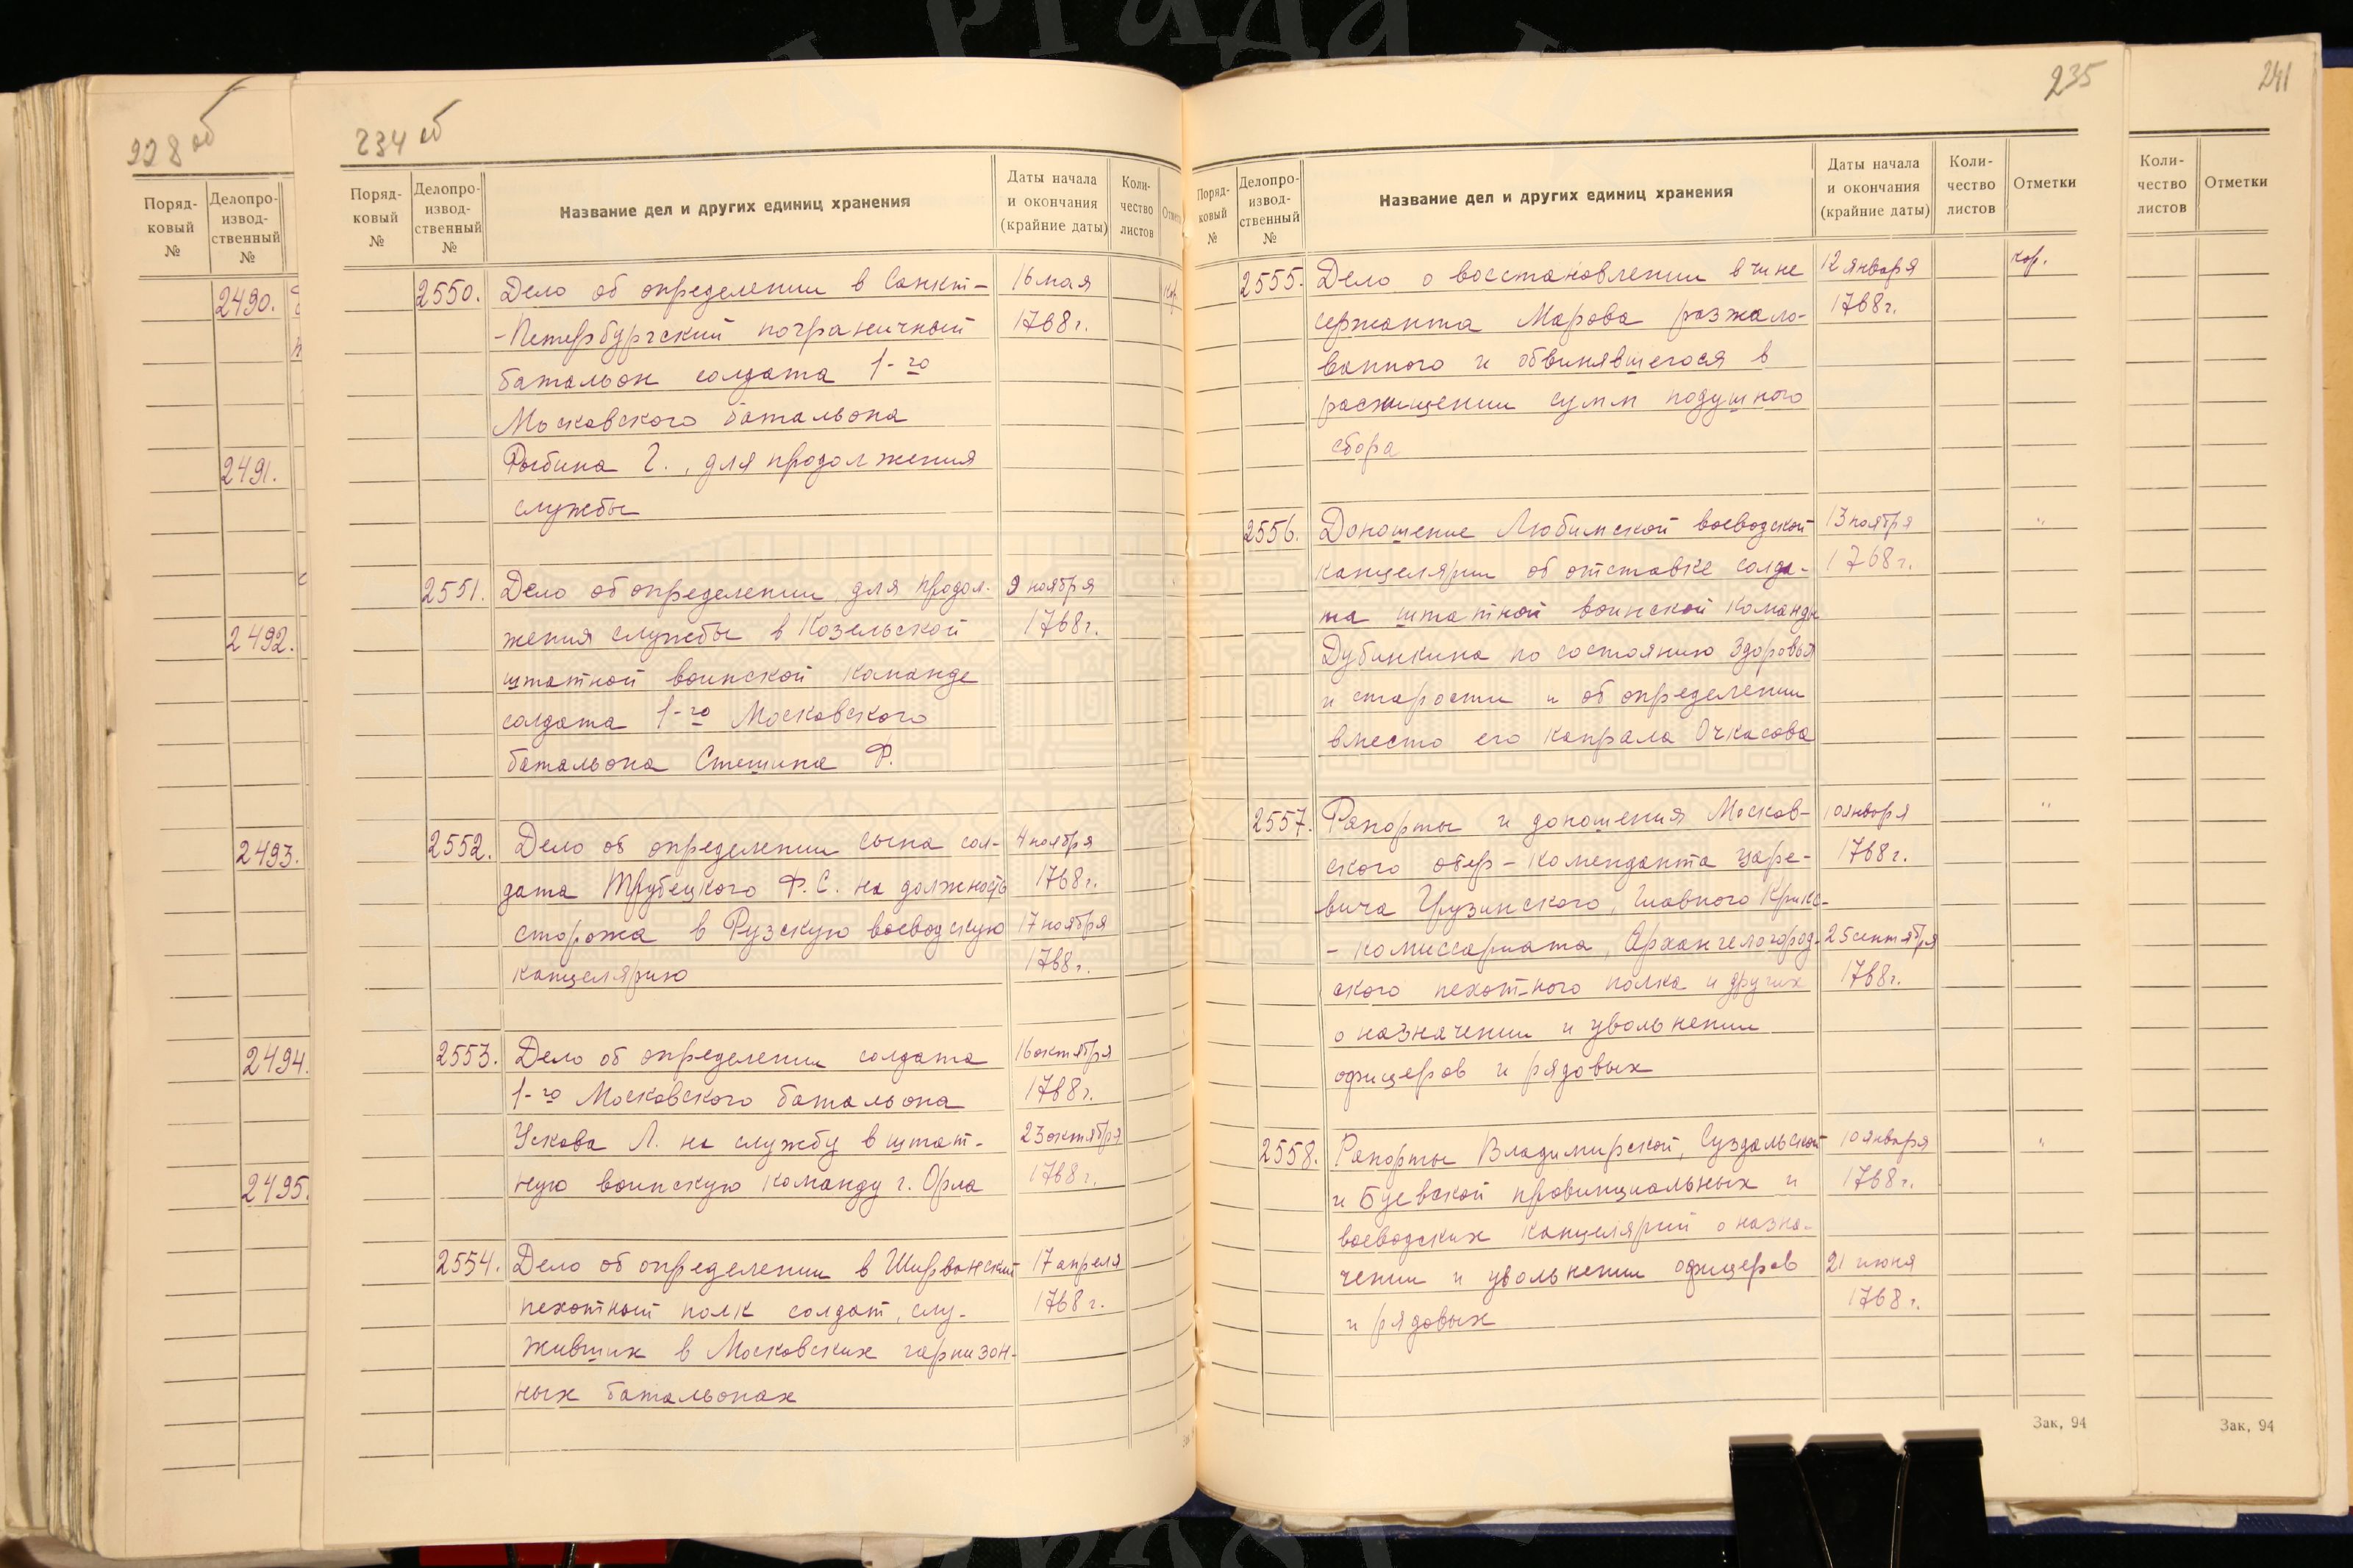 РГАДА
228 об
Поряд-
ковый
№
Делопро-
извод-
ственный
№
2490.
2491.
2492.
2493.
2494.
2495.
234 об
Поряд-
ковый
№
Делопро-
извод-
ственный
№
Название дел и других единиц хранения
Даты начала
и окончания
(крайние даты)
Коли-
чество
листов
2550. Дело об определении в Санкт- 16 мая
-Петербургский пограничный 1768 г.
батальон солдата 1-го
Московского батальона
Рыбина Г., для продолжения
службы
2551. Дело об определении для продол- 9 ноября
жения службы в Козельской 1768 г.
штатной воинской команде
солдата 1-го Московского
батальона Стешина Ф.
2552. Дело об определении сына сол- 4 ноября
дата Трубецкого Ф.С. на должность 1768 г.
сторожа в Рузскую воеводскую 17 ноября
канцелярию 1768 г.
2553. Дело об определении солдата 16 октября
1-го Московского батальона 1768 г.
Ускова Л. на службу в штат- 23 октября
ную воинскую команду г. Орла 1768 г.
2554. Дело об определении в Ширванский 17 апреля
пехотный полк солдат, слу- 1768 г.
живших в Московских гарнизон-
ных батальонах
235
Поряд-
ковый
№
Делопро-
извод-
ственный
№
Название дел и других единиц хранения
Даты начала
и окончания
(крайние даты)
Коли-
чество
листов
Отметки
2555. Дело о восстановлении в чине 12 января кор.
сержанта Марова разжало- 1768 г.
ванного и обвинявшегося в
расхищении сумм подушного
сбора
2556. Доношение Любимской воеводской 13 ноября "
канцелярии об отставке солда- 1768 г.
та штатной воинской команды
Дубинкина по состоянию здоровья
и старости и об определении
вместо его капрала Очкасова
2557. Рапорты и доношения Москов- 10 января "
ского обер-коменданта царе- 1768 г.
вича Грузинского, Главного Кригс-
-комиссариата, Архангелогород- 25 сентября
ского пехотного полка и других 1768 г.
о назначении и увольнении
офицеров и рядовых
2558. Рапорты Владимирской, Суздальской 10 января "
и Буевской провинциальных и 1768 г.
воеводских канцелярий о назна-
чении и увольнении офицеров 21 июня
и рядовых 1768 г.
Зак, 94
241
Коли-
чество
листов
Отметки
Зак, 94